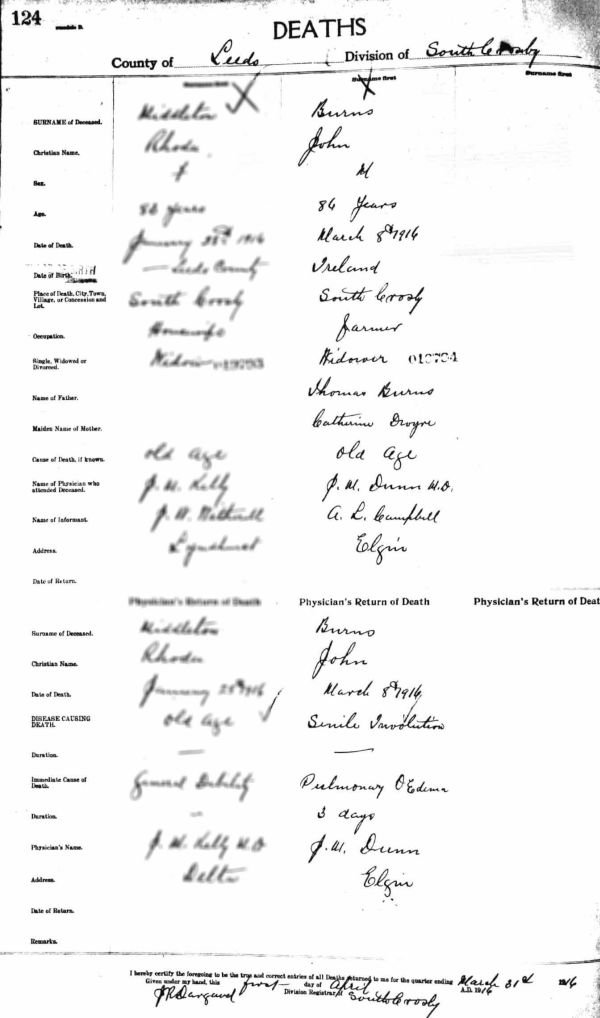 124
DEATHS
County of Leeds Division of South Crosby
Surname first Surname first Surname first
SURNAME of Deceased. Middleton Burns
Christian Name. Rhoda John
Sex. f M
Age. 86 Years
Date of Death. January 1916 March 8th 1916
Date of Birth. Leeds County Ireland
Place of Death, City, Town, Village, or Concession and Lot. South Crosby South Crosby
Occupation. Housewife farmer
Single, Widowed or Divorced. Widow Widower
Name of Father. Thomas Burns
Maiden Name of Mother. Catherine
Cause of Death, if known. old age old age
Name of Physician who attended Deceased. J. M. Kelly J. M. Dunn M.D.
Name of Informant. A. L. Campbell
Address. Lyndhurst Elgin
Date of Return.
Physician's Return of Death Physician's Return of Death Physician's Return of Deat
Surname of Deceased. Middleton Burns
Christian Name. Rhoda John
Date of Death. January 25th 1916 March 8th 1916
DISEASE CAUSING DEATH. old age Senile Involution
Duration. — —
Immediate Cause of Death. General Debility Pulmonary OEdema
Duration. — 3 days
Physician's Name. J. M. Kelly M.D J. M. Dunn
Address. Delta Elgin
Date of Return.
Remarks.
I hereby certify the foregoing to be the true and correct entries of all Deaths returned to me for the quarter ending March 31st 1916
Given under my hand, this first day of April A.D. 1916
Division Registrar of South Crosby